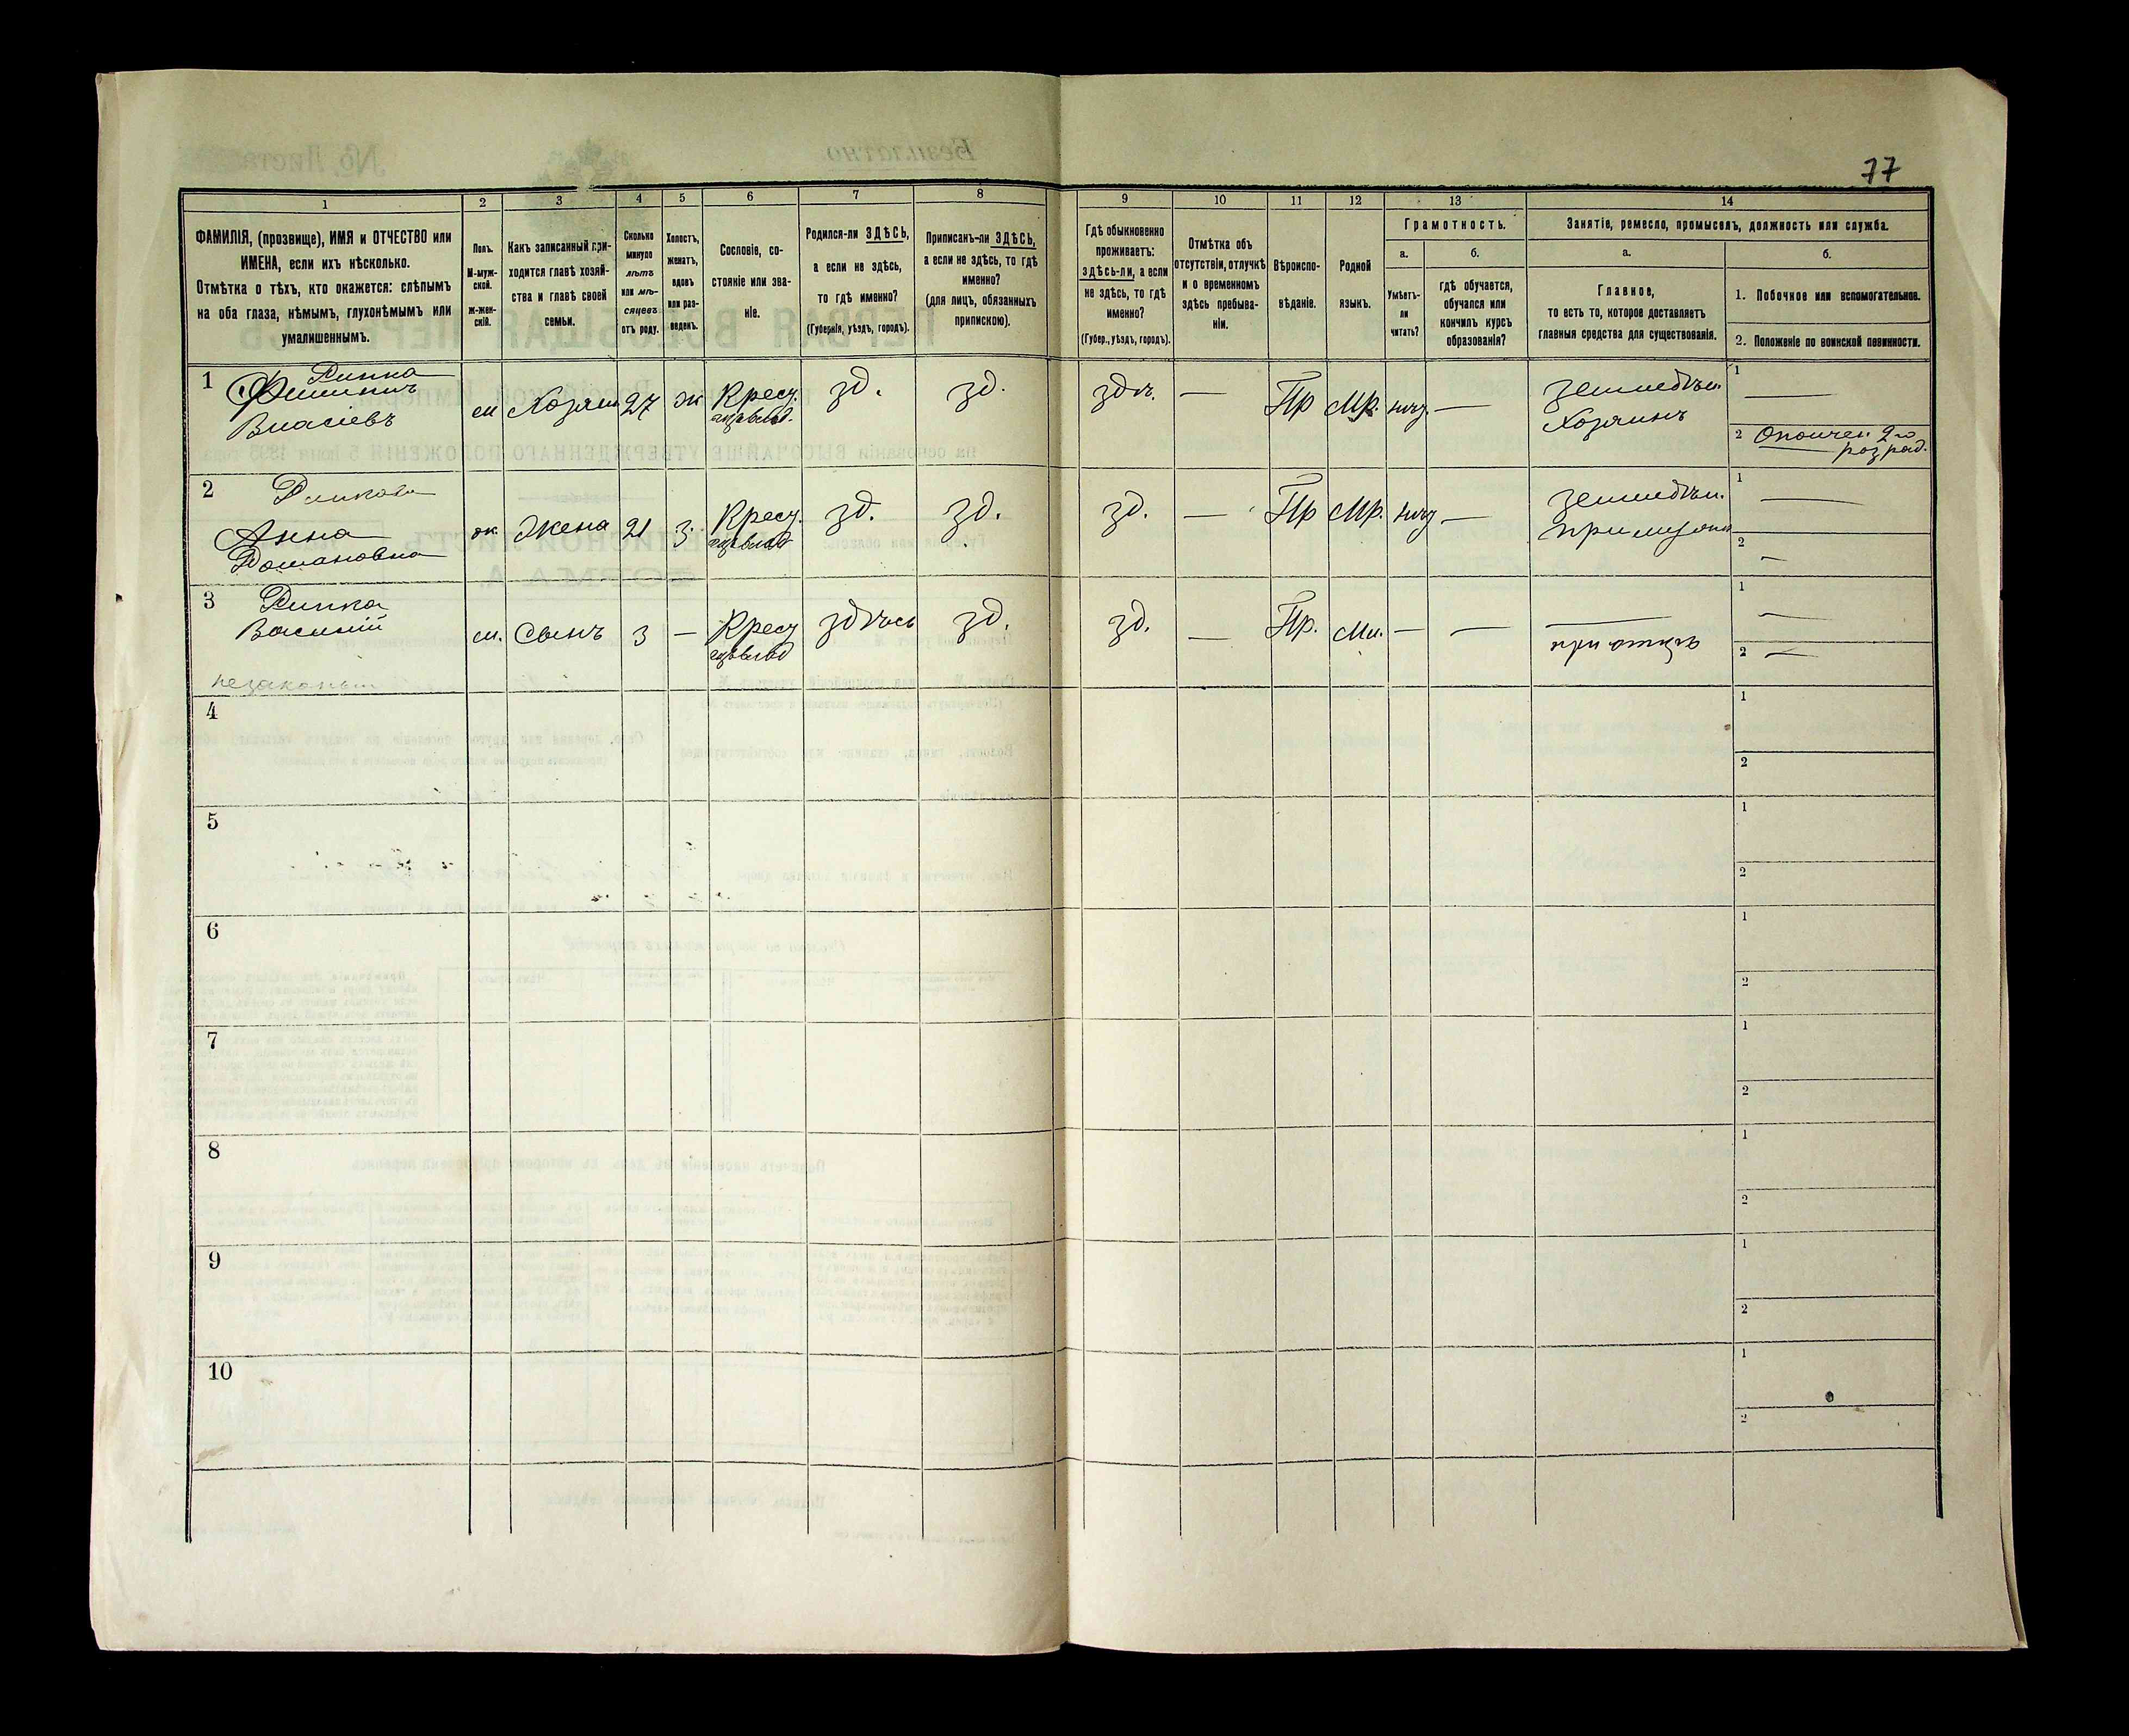 77
1
2
3
4
5
6
7
8
9
10
11
12
13
14
ФАМИЛІЯ, (прозвище), ИМЯ и ОТЧЕСТВО или
ИМЕНА, если ихъ нѣсколько.
Отмѣтка о тѣхъ, кто окажется: слѣпымъ
на оба глаза, нѣмымъ, глухонѣмымъ или
умалишеннымъ.
Полъ.
М-муж-
ской.
ж-жен-
скій.
Какъ записанный при-
ходится главѣ хозяй-
ства и главѣ своей
семьи.
Сколько
минуло
лѣтъ
или мѣ-
сяцевъ
отъ роду.
Холостъ,
женатъ,
вдовъ
или раз-
веденъ.
Сословіе, со-
стояніе или зва-
ніе.
Родился-ли ЗДѢСЬ,
а если не здѣсь,
то гдѣ именно?
(Губернія, уѣздъ, городъ).
Приписанъ-ли ЗДѢСЬ,
а если не здѣсь, то гдѣ
именно?
(для лицъ, обязанныхъ
припискою).
Гдѣ обыкновенно
проживаетъ:
здѣсь-ли, а если
не здѣсь, то гдѣ
именно?
(Губер., уѣздъ, городъ).
Отмѣтка объ
отсутствіи, отлучкѣ
и о временномъ
здѣсь пребыва-
ніи.
Вѣроиспо-
вѣданіе.
Родной
языкъ.
Грамотность.
а.
Умѣетъ-
ли
читать?
б.
гдѣ обучается,
обучался или
кончилъ курсъ
образованія?
Занятіе, ремесло, промыселъ, должность или служба.
а.
Главное,
то есть то, которое доставляетъ
главныя средства для существованія.
б.
1. Побочное или вспомогательное.
2. Положеніе по воинской повинности.
1
Филипъ
Власіевъ
м
Хозяин
27
ж
Крест.
зд.
зд.
здѣ.
—
Пр
Мр.
—
земледѣл.
Хозяинъ
1 —
2 Ополчен 2го
разряд.
2
Анна
Романовна
ж.
Жена
21
з.
Крест.
зд.
зд.
зд.
—
Пр
Мр.
—
земледѣл.
1 —
2 —
3
Василій
м.
сынъ
3
—
Крест
здѣсь
зд.
зд.
—
Пр.
Мл.
—
—
при отцѣ
1 —
2 —
4
1
2
5
1
2
6
1
2
7
1
2
8
1
2
9
1
2
10
1
2